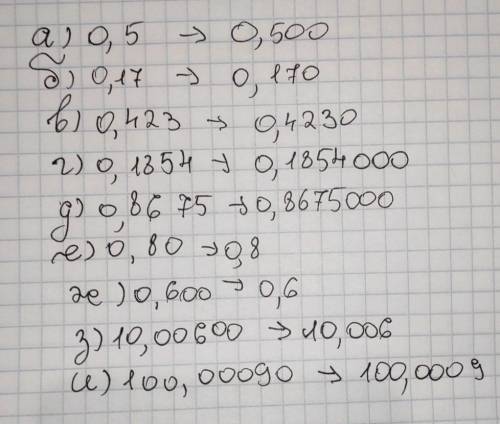 а) 0,5 → 0,500
б) 0,17 → 0,170
в) 0,423 → 0,4230
г) 0,1354 → 0,1354000
д) 0,8675 → 0,8675000
е) 0,80 → 0,8
ж) 0,600 → 0,6
з) 10,00600 → 10,006
и) 100,00090 → 100,0009